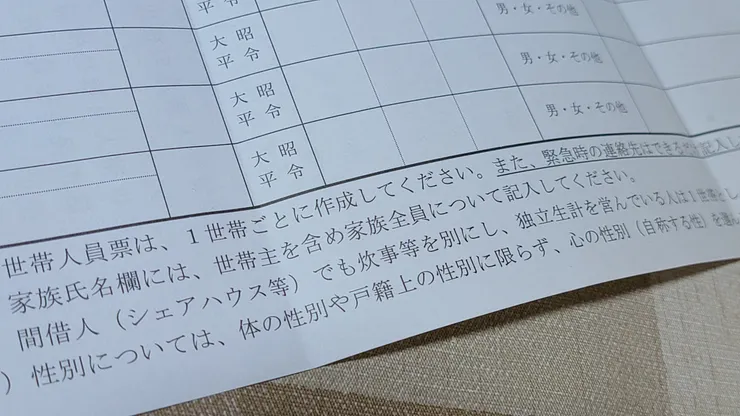 男・女・その他
平 令
大 昭
平 令
男・女・その他
大 昭
平 令
男・女・その他
大 昭
平 令
世帯人員票は、１世帯ごとに作成してください。また、緊急時の連絡先はできる 記入し
家族氏名欄には、世帯主を含め家族全員について記入してください。
間借人（シェアハウス等）でも炊事等を別にし、独立生計を営んでいる人は１世帯とし
）性別については、体の性別や戸籍上の性別に限らず、心の性別（自称する性）を選